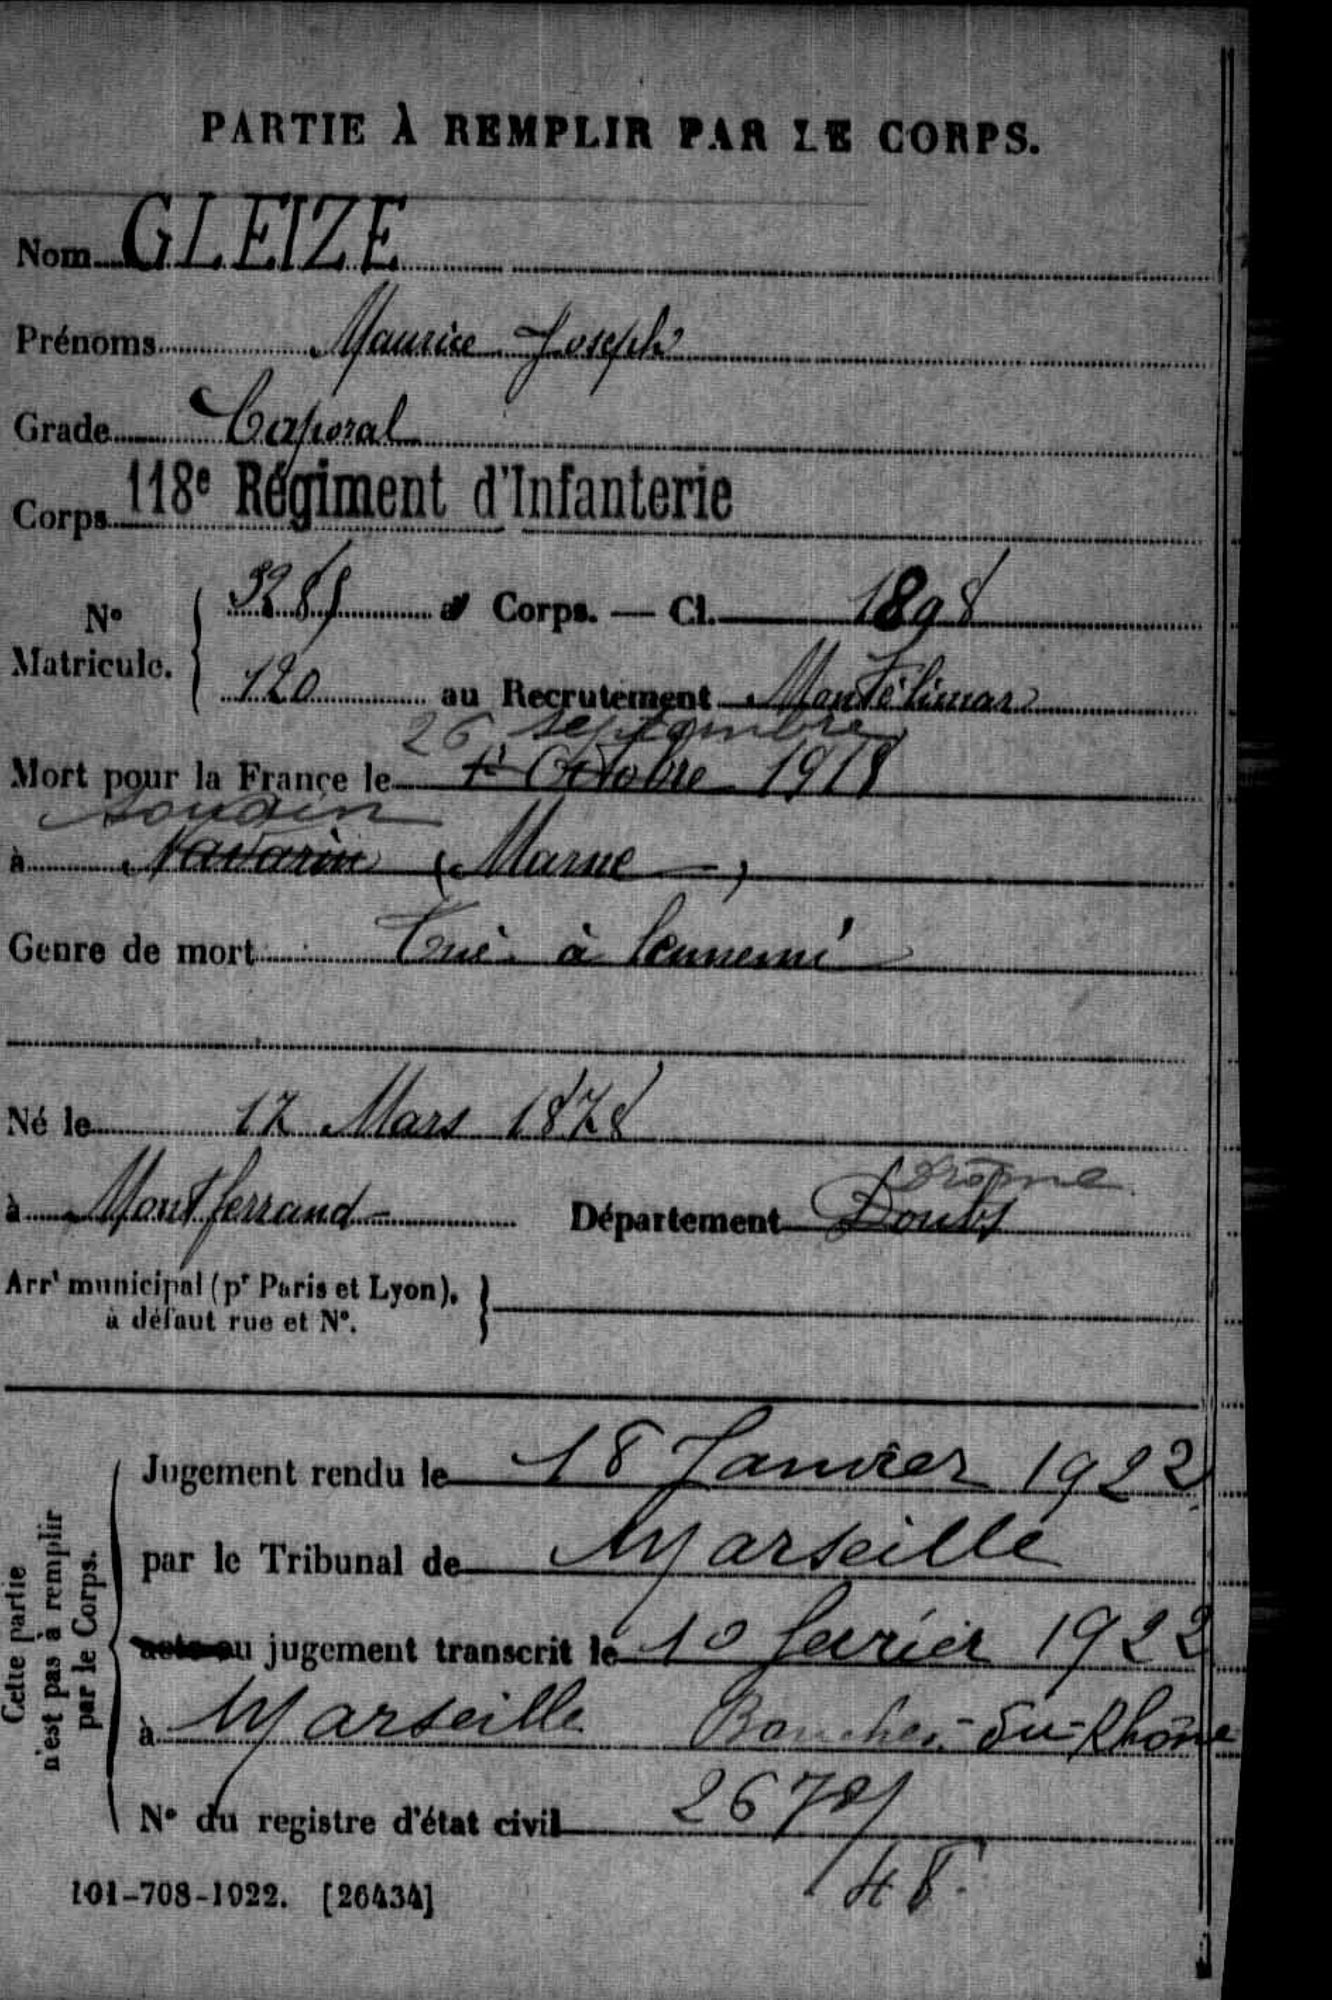 PARTIE À REMPLIR PAR LE CORPS.
Nom GLEIZE
Prénoms Maurice Joseph
Grade Caporal
Corps 118e Régiment d'Infanterie
N° Matricule. { au Corps. — Cl. 1898
120 au Recrutement Montélimar
26 septembre
Mort pour la France le 1er Octobre 1918
Souain
à Navarin (Marne)
Genre de mort Tué à l'ennemi
Né le 17 Mars 1878
Drôme
à Montferrand Département Doubs
Arrt municipal (pr Paris et Lyon),
à défaut rue et N°. }
Cette partie
n'est pas à remplir
par le Corps.
Jugement rendu le 18 Janvier 1922
par le Tribunal de Marseille
acte ou jugement transcrit le 10 février 1922
à Marseille Bouches-du-Rhône
N° du registre d'état civil
101-708-1922. [26434]